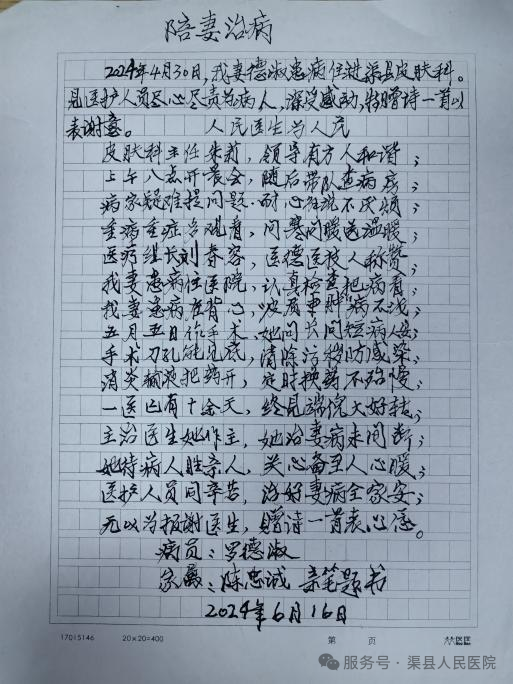 陪妻治病
2024年4月30日,我妻德淑患病住进渠县皮肤科。
见医护人员尽心尽责为病人,深受感动,特赠诗一首以
表谢意。 人民医生为人民
皮肤科主任朱莉,领导有方人和谐;
上午八点开晨会,随后带队查病房;
病家疑难提问题,耐心解说不厌烦;
重病重症当观看,问寒问暖送温暖;
医疗组长刘春容,医德医技人称赞;
我妻患病住医院,认真检查把病看;
我妻患病在背心,皮质肿病不浅;
五月五日作手术,她问长问短病人安;
手术刀孔能见底,清除污物防感染;
消炎输液把药开,定时换药不怠慢;
一医已有十余天,终见端倪大好转;
主治医生她作主,她治妻病未间断;
她待病人胜亲人,关心备至人心暖;
医护人员同辛苦,治好妻病全家安;
无以为报谢医生,赠诗一首表心意。
病员:罗德淑
家属:陈忠诚 亲笔题书
2024年6月16日
17015146 20×20=400 第 页
服务号·渠县人民医院